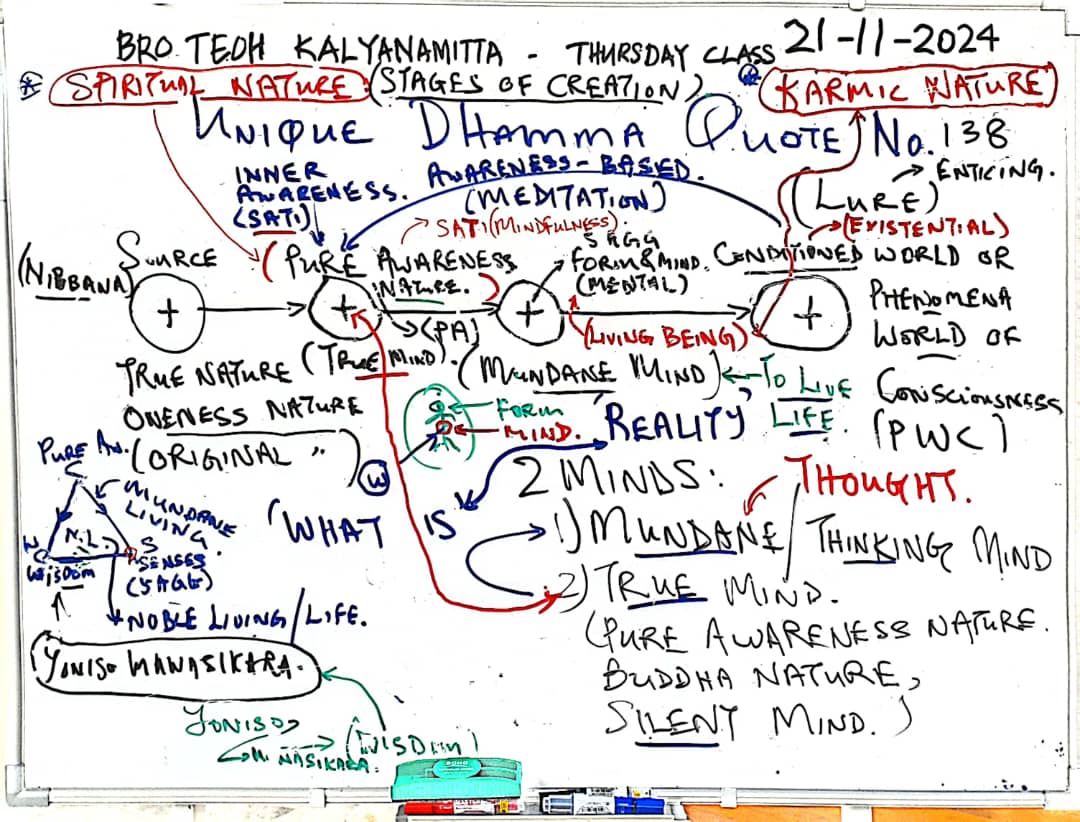 BRO. TEOH KALYANAMITTA - THURSDAY CLASS 21-11-2024
SPIRITUAL NATURE (STAGES OF CREATION) KARMIC NATURE
UNIQUE DHAMMA QUOTE No. 138
INNER AWARENESS. (SATI)
AWARENESS-BASED. (MEDITATION)
(LURE) → ENTICING.
→ SATI (MINDFULNESS).
→ (EXISTENTIAL)
(NIBBANA) SOURCE
(PURE AWARENESS NATURE.)
5 AGG
FORM & MIND.
(MENTAL)
CONDITIONED WORLD OR
PHENOMENA
WORLD OF
CONSCIOUSNESS
(PWC)
+ + + +
→ (PA)
(LIVING BEING)
TRUE NATURE (TRUE MIND).
(MUNDANE MIND) ← TO LIVE LIFE.
ONENESS NATURE
(ORIGINAL ")
FORM
MIND.
W
'REALITY'
'WHAT IS'
2 MINDS:
THOUGHT.
1) MUNDANE / THINKING MIND
2) TRUE MIND.
(PURE AWARENESS NATURE.
BUDDHA NATURE,
SILENT MIND.)
PURE AW.
MUNDANE LIVING.
N.L.
S
SENSES
(5 AGG)
WISDOM
NOBLE LIVING / LIFE.
YONISO MANASIKARA.
YONISO,
MANASIKARA.
(WISDOM)